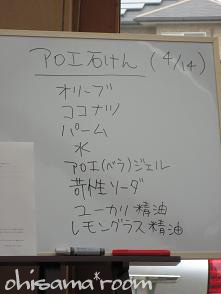 アロエ石けん (4/14)
オリーブ
ココナツ
パーム
水
アロエ(ベラ)ジェル
苛性ソーダ
ユーカリ精油
レモングラス精油
ohisama*room